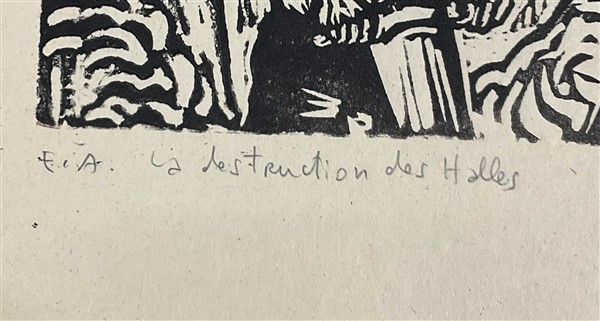 E.A. La destruction des Halles